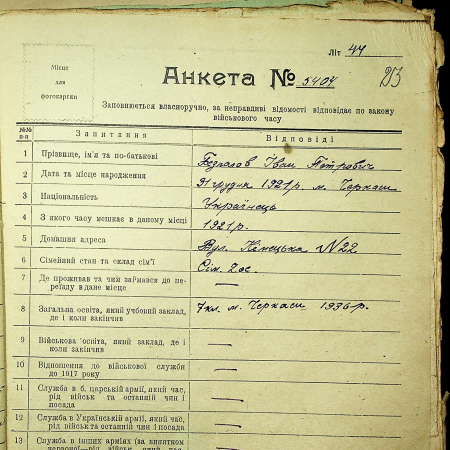 Літ 44
213
Місце
для
фотокартки
Анкета № 5404
Заповнюється власноручно, за неправдиві відомості відповідає по закону
військового часу
№№ п-п Запитання Відповіді
1 Прізвище, ім'я та по-батькові Безпалов Іван Петрович
2 Дата та місце народження 31 грудня 1921 р. м. Черкаси
3 Національність Українець
4 З якого часу мешкає в даному місці 1921 р.
5 Домашня адреса Вул. Німецька №22
6 Сімейний стан та склад сім'ї Сім. 2 ос.
7 Де проживав та чим займався до пе-
реїзду в дане місце —
8 Загальна освіта, який учбовий заклад,
де і коли закінчив 7 кл. м. Черкаси 1936 р.
9 Військова освіта, який заклад, де і
коли закінчив —
10 Відношення до військової служби
до 1917 року —
11 Служба в б. царській армії, який час,
рід військ та останній чин і
посада —
12 Служба в Українській армії, який час,
рід військ та останній чин і посада —
13 Служба в інших арміях (за винятком